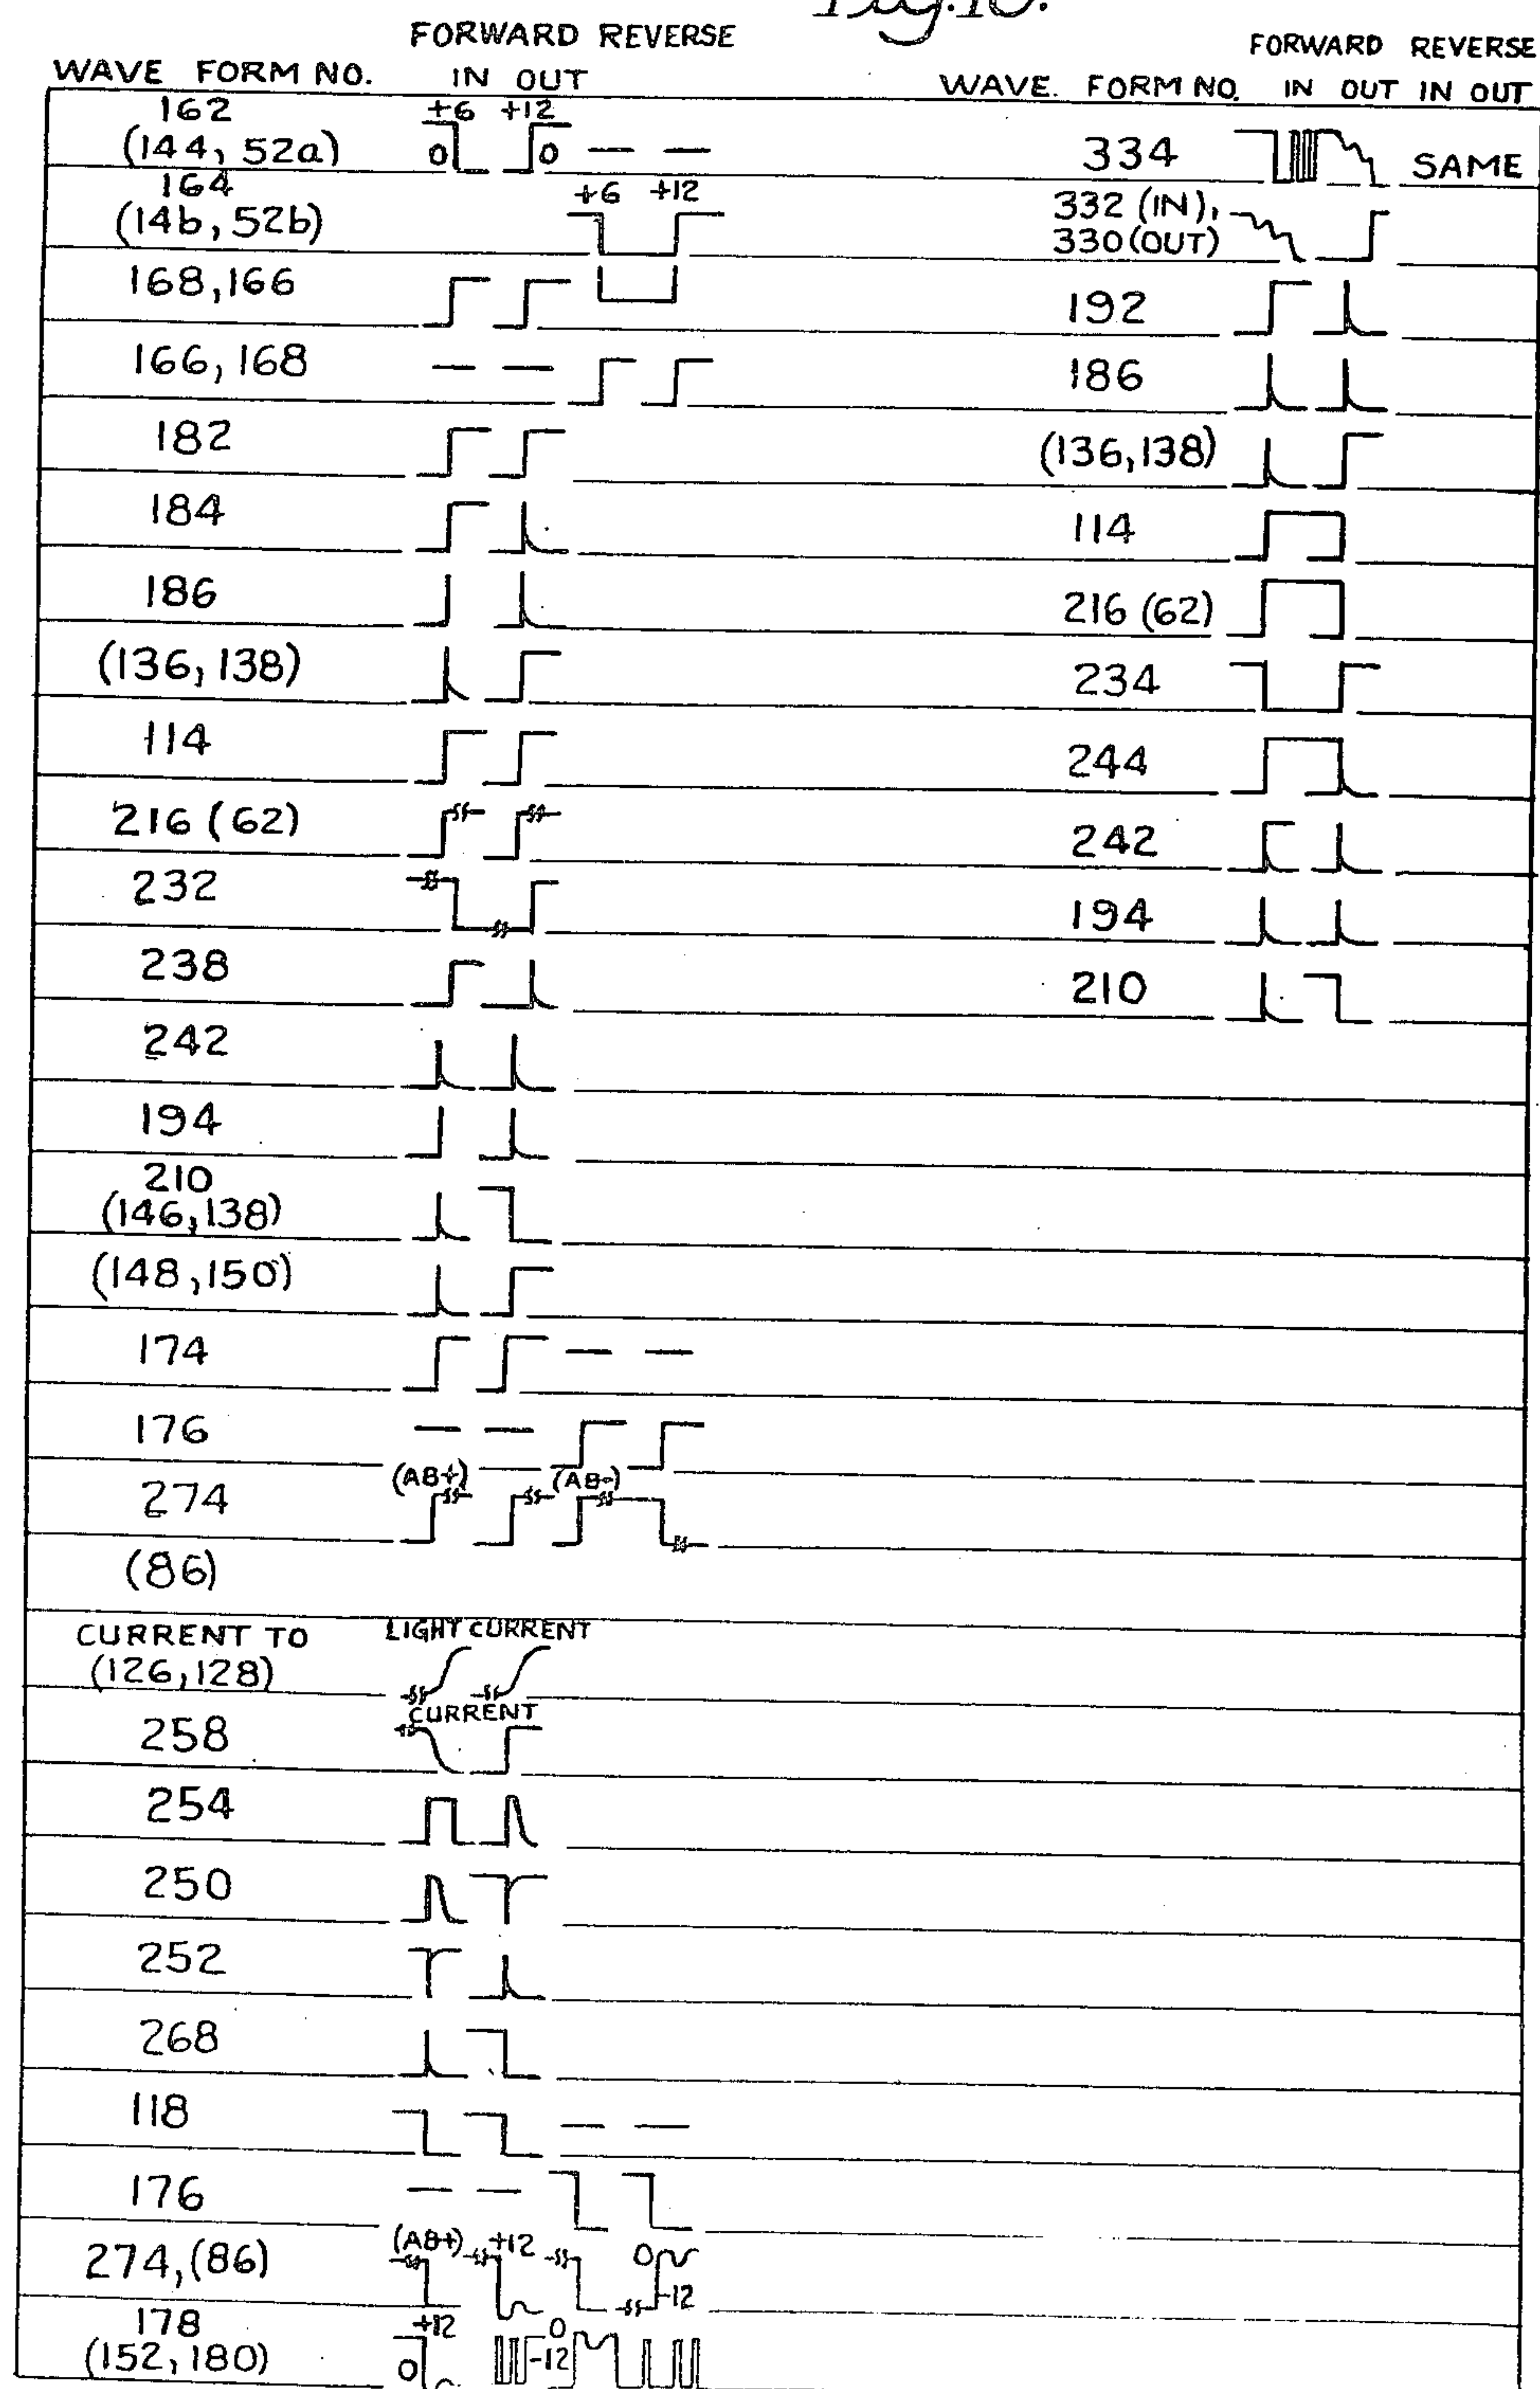 Fig.10.
FORWARD REVERSE
WAVE FORM NO. IN OUT
162 +6 +12
(144, 52a) 0 0
164 +6 +12
(14b, 52b)
168,166
166, 168
182
184
186
(136, 138)
114
216 (62)
232
238
242
194
210
(146,138)
(148,150)
174
176
(AB+) (AB-)
274
(86)
CURRENT TO LIGHT CURRENT
(126,128)
CURRENT
258
254
250
252
268
118
176
(AB+) +12 0
274,(86) -12
178 +12 0
(152,180) 0 -12
FORWARD REVERSE
WAVE. FORM NO. IN OUT IN OUT
334 SAME
332 (IN),
330 (OUT)
192
186
(136,138)
114
216 (62)
234
244
242
194
210